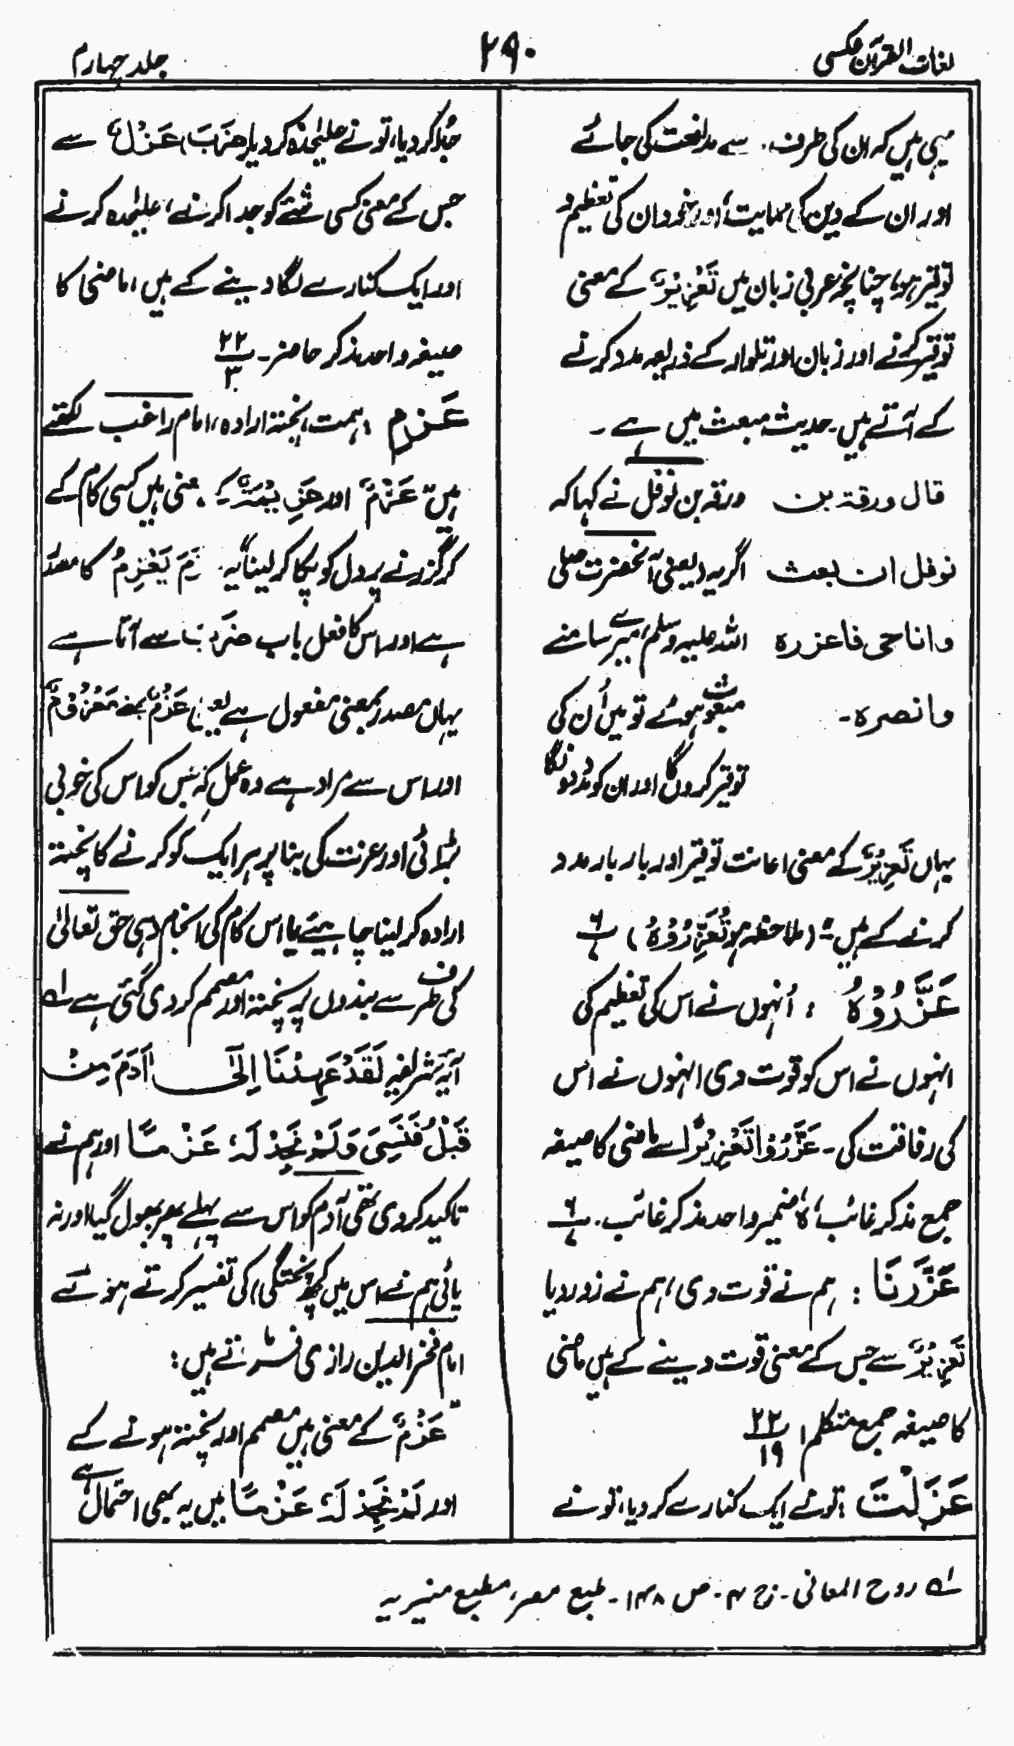 لغات القرآن عکسی
۲۹۰
جلد چہارم
یہی ہیں کہ ان کی طرف سے مدافعت کی جائے
اور ان کے دین کی حمایت، اور خود ان کی تعظیم و
توقیر ہو، چنانچہ عربی زبان میں تَعْزِیْرٌ کے معنی
توقیر کرنے اور زبان اور تلوار کے ذریعہ مدد کرنے
کے آتے ہیں۔ حدیث مبعث میں ہے ۔
قال ورقۃ بن ورقہ بن نوفل نے کہا کہ
نوفل ان بعث اگر یہ (یعنی آنحضرت صلی
وانا حی فاعزرہ اللہ علیہ وسلم) میرے سامنے
وانصرہ۔ مبعوث ہوئے تو میں اُن کی
توقیر کروں گا اور ان کو مدد دونگا
یہاں تَعْزِیْرٌ کے معنی اعانت توقیر اور بار بار مدد
کرنے کے ہیں (ملاحظہ ہو تُعَزِّرُوْہُ) ۶/۹
عَزَّرُوْہُ : اُنہوں نے اس کی تعظیم کی
انہوں نے اس کو قوت دی انہوں نے اس
کی رفاقت کی۔ عَزَّرُوْا تَعْزِیْرٌ سے ماضی کا صیغہ
جمع مذکر غائب، ہٗ ضمیر واحد مذکر غائب۔ ۹/۹
عَزَّزْنَا : ہم نے قوت دی، ہم نے زور دیا
تَعْزِیْزٌ سے جس کے معنی قوت دینے کے ہیں ماضی
کا صیغہ جمع متکلم ۲۲/۱۹
عَزَلْتَ : تونے ایک کنارے کر دیا، تو نے
جُدا کر دیا، تو نے علیٰحدہ کر دیا (ضَرَبَ) عَزْلٌ سے
جس کے معنی کسی شئے کو جدا کرنے، علیٰحدہ کرنے
اور ایک کنارے لگا دینے کے ہیں، ماضی کا
صیغہ واحد مذکر حاضر۔ ۲۲/۳
عَزْمِ : ہمت، پختہ ارادہ، امام راغب لکھتے
ہیں عَزْمٌ اور عَزِیْمَۃٌ کے معنی ہیں کسی کام کے
کر گزرنے پر دل کو پکا کر لینا یہ عَزَمَ یَعْزِمُ کا مصدر
ہے اور اس کا فعل باب ضَرَبَ سے آتا ہے
یہاں مصدر بمعنی مفعول ہے یعنی عَزْمٌ بمعنی مَعْزُوْمٌ
اور اس سے مراد ہے وہ عمل کہ جس کو اس کی خوبی
بڑائی اور عزت کی بنا پر ہر ایک کو کرنے کا پختہ
ارادہ کر لینا چاہیئے یا اس کام کی انجام دہی حق تعالیٰ
کی طرف سے بندوں پر پختہ اور مصمم کر دی گئی ہے لہ
آیۂ شریفہ لَقَدْ عَہِدْنَآ اِلٰٓی اٰدَمَ مِنْ
قَبْلُ فَنَسِیَ وَلَمْ نَجِدْ لَہٗ عَزْمًا اور ہم نے
تاکید کر دی تھی آدم کو اس سے پہلے پھر بھول گیا اور نہ
پائی ہم نے اس میں کچھ پختگی) کی تفسیر کرتے ہوئے
امام فخر الدین رازی فرماتے ہیں :
"عَزْمٌ کے معنی ہیں مصمم اور پختہ ہونے کے
اور لَمْ نَجِدْ لَہٗ عَزْمًا میں یہ بھی احتمال ہے
لہ روح المعانی - ج ۴ - ص ۱۴۸ - طبع مصر، مطبع منیریہ